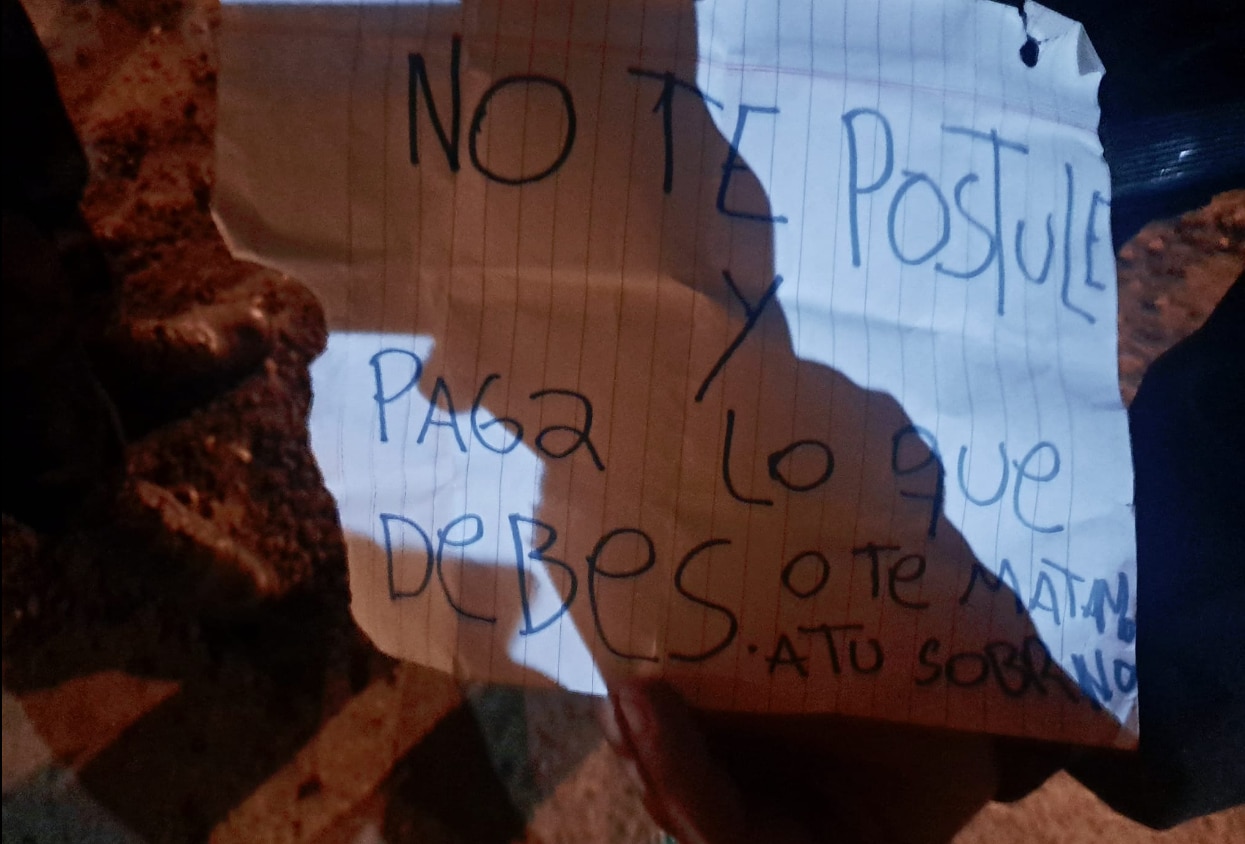 NO TE POSTULE
Y
PAGa Lo que
DeBeS. O Te MATAMO
. ATU SOBRNO